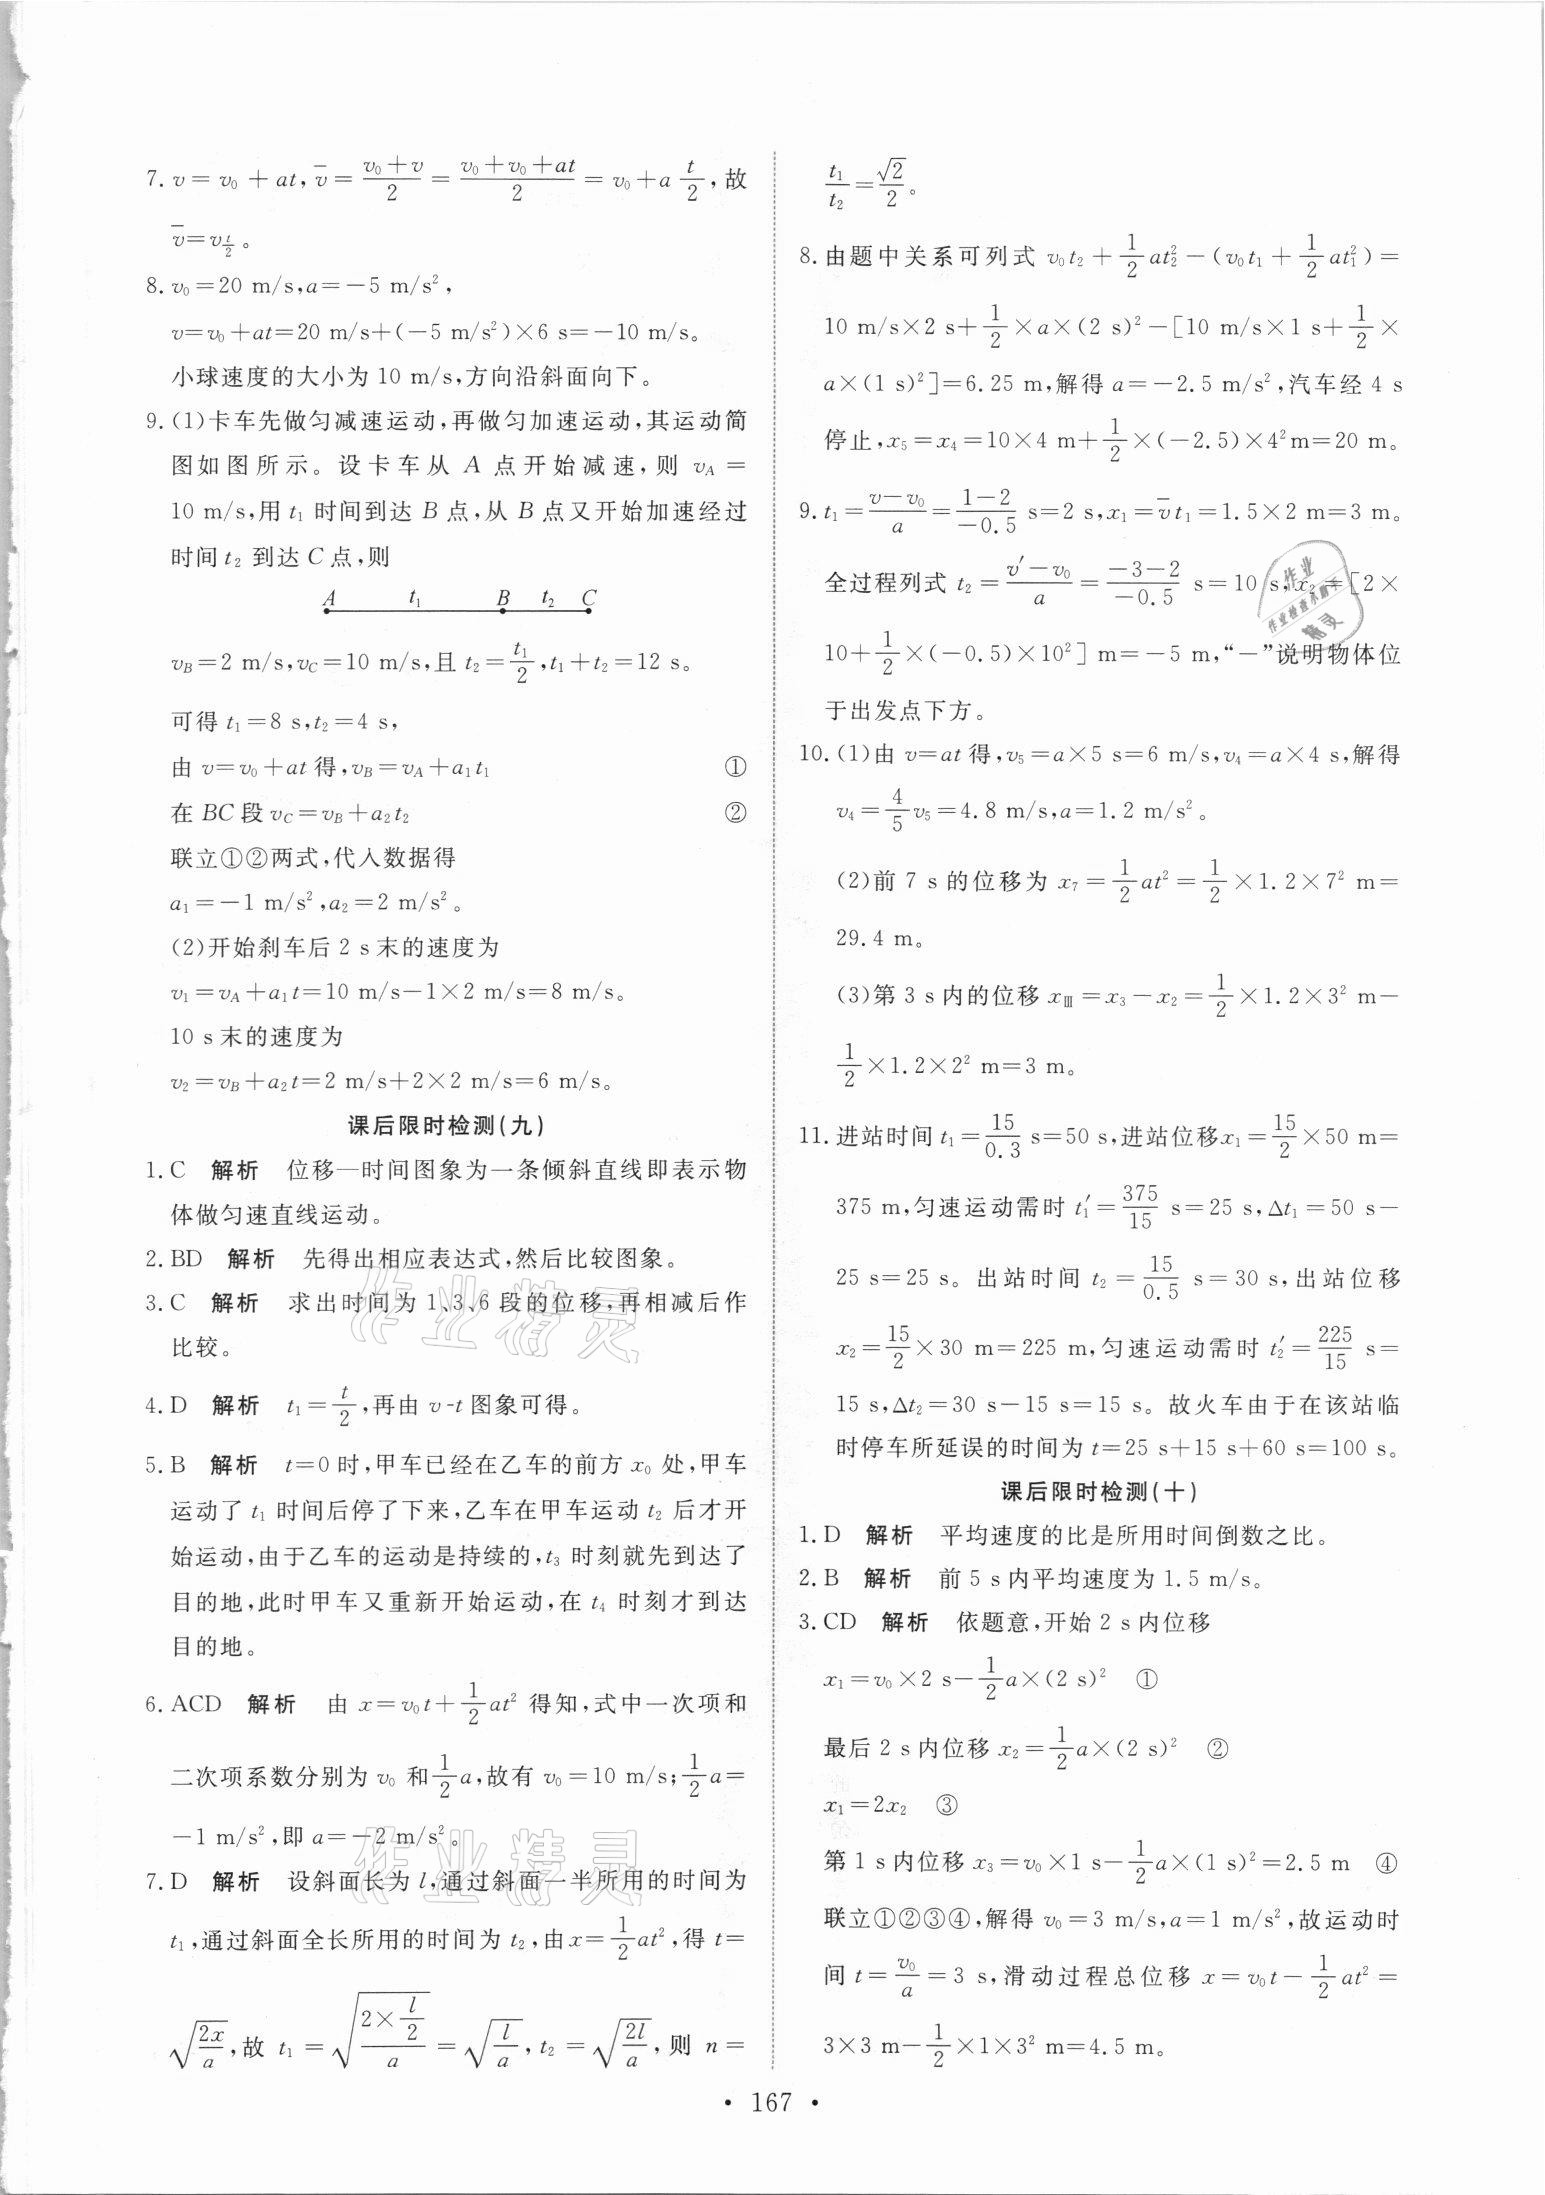 7. v=v₀+at, v̄=(v₀+v)/2=(v₀+v₀+at)/2=v₀+a t/2,故
v̄=v_{t/2}。
8. v₀=20 m/s,a=-5 m/s²,
v=v₀+at=20 m/s+(-5 m/s²)×6 s=-10 m/s。
小球速度的大小为 10 m/s,方向沿斜面向下。
9. (1)卡车先做匀减速运动,再做匀加速运动,其运动简
图如图所示。设卡车从 A 点开始减速,则 v_A=
10 m/s,用 t₁ 时间到达 B 点,从 B 点又开始加速经过
时间 t₂ 到达 C 点,则
A t₁ B t₂ C
v_B=2 m/s,v_C=10 m/s,且 t₂=t₁/2,t₁+t₂=12 s。
可得 t₁=8 s,t₂=4 s,
由 v=v₀+at 得,v_B=v_A+a₁t₁ ①
在 BC 段 v_C=v_B+a₂t₂ ②
联立①②两式,代入数据得
a₁=-1 m/s²,a₂=2 m/s²。
(2)开始刹车后 2 s 末的速度为
v₁=v_A+a₁t=10 m/s-1×2 m/s=8 m/s。
10 s 末的速度为
v₂=v_B+a₂t=2 m/s+2×2 m/s=6 m/s。
课后限时检测(九)
1. C 解析 位移—时间图象为一条倾斜直线即表示物
体做匀速直线运动。
2. BD 解析 先得出相应表达式,然后比较图象。
3. C 解析 求出时间为 1、3、6 段的位移,再相减后作
比较。
4. D 解析 t₁=t/2,再由 v-t 图象可得。
5. B 解析 t=0 时,甲车已经在乙车的前方 x₀ 处,甲车
运动了 t₁ 时间后停了下来,乙车在甲车运动 t₂ 后才开
始运动,由于乙车的运动是持续的,t₃ 时刻就先到达了
目的地,此时甲车又重新开始运动,在 t₄ 时刻才到达
目的地。
6. ACD 解析 由 x=v₀t+1/2 at² 得知,式中一次项和
二次项系数分别为 v₀ 和 1/2 a,故有 v₀=10 m/s;1/2 a=
-1 m/s²,即 a=-2 m/s²。
7. D 解析 设斜面长为 l,通过斜面一半所用的时间为
t₁,通过斜面全长所用的时间为 t₂,由 x=1/2 at²,得 t=
√(2x/a),故 t₁=√((2×l/2)/a)=√(l/a),t₂=√(2l/a),则 n=
t₁/t₂=√2/2。
8. 由题中关系可列式 v₀t₂+1/2 at₂²-(v₀t₁+1/2 at₁²)=
10 m/s×2 s+1/2×a×(2 s)²-[10 m/s×1 s+1/2×
a×(1 s)²]=6.25 m,解得 a=-2.5 m/s²,汽车经 4 s
停止,x₅=x₄=10×4 m+1/2×(-2.5)×4²m=20 m。
9. t₁=(v-v₀)/a=(1-2)/(-0.5) s=2 s,x₁=v̄t₁=1.5×2 m=3 m。
全过程列式 t₂=(v′-v₀)/a=(-3-2)/(-0.5) s=10 s,x₂=[2×
10+1/2×(-0.5)×10²] m=-5 m,“-”说明物体位
于出发点下方。
10. (1)由 v=at 得,v₅=a×5 s=6 m/s,v₄=a×4 s,解得
v₄=4/5 v₅=4.8 m/s,a=1.2 m/s²。
(2)前 7 s 的位移为 x₇=1/2 at²=1/2×1.2×7² m=
29.4 m。
(3)第 3 s 内的位移 x_Ⅲ=x₃-x₂=1/2×1.2×3² m-
1/2×1.2×2² m=3 m。
11. 进站时间 t₁=15/0.3 s=50 s,进站位移x₁=15/2×50 m=
375 m,匀速运动需时 t₁′=375/15 s=25 s,Δt₁=50 s-
25 s=25 s。出站时间 t₂=15/0.5 s=30 s,出站位移
x₂=15/2×30 m=225 m,匀速运动需时 t₂′=225/15 s=
15 s,Δt₂=30 s-15 s=15 s。故火车由于在该站临
时停车所延误的时间为 t=25 s+15 s+60 s=100 s。
课后限时检测(十)
1. D 解析 平均速度的比是所用时间倒数之比。
2. B 解析 前 5 s 内平均速度为 1.5 m/s。
3. CD 解析 依题意,开始 2 s 内位移
x₁=v₀×2 s-1/2 a×(2 s)² ①
最后 2 s 内位移 x₂=1/2 a×(2 s)² ②
x₁=2x₂ ③
第 1 s 内位移 x₃=v₀×1 s-1/2 a×(1 s)²=2.5 m ④
联立①②③④,解得 v₀=3 m/s,a=1 m/s²,故运动时
间 t=v₀/a=3 s,滑动过程总位移 x=v₀t-1/2 at²=
3×3 m-1/2×1×3² m=4.5 m。
• 167 •
作业精灵
作业精灵
作业
精灵